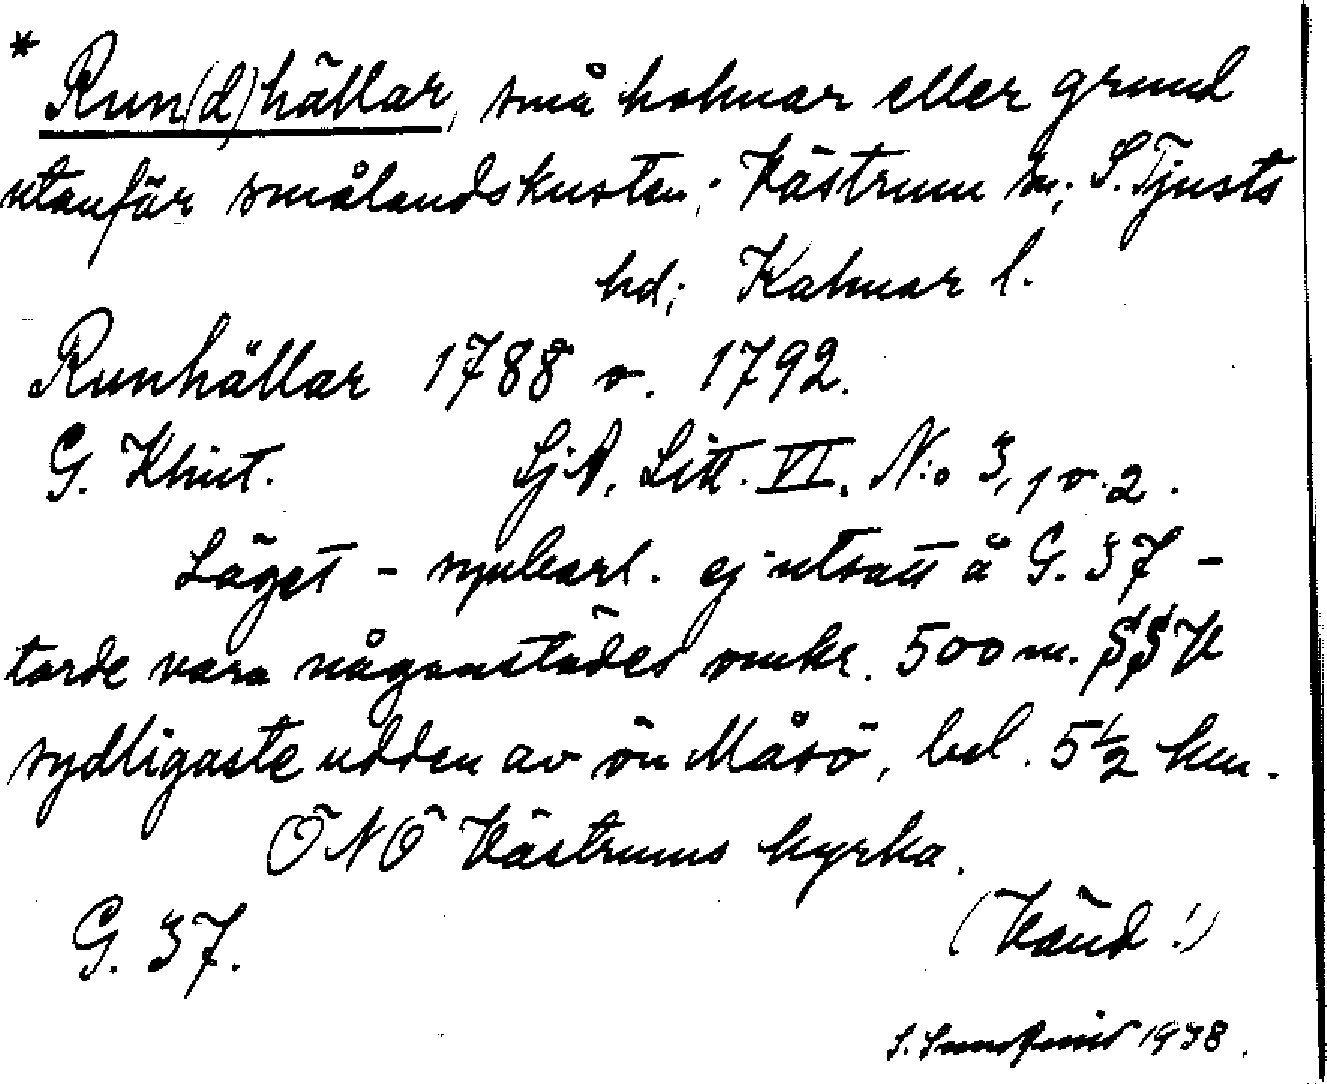 * Run(d)hällar, små holmar eller grund
utanför smålandskusten; Västrum sn; S. Tjusts
hd; Kalmar l.
Runhällar 1788 o. 1792.
G. Klint. SjA, Litt. VI. N:o 3, 1 o. 2.
Läget - synbarl. ej utsatt å G. 37 -
torde vara någonstädes omkr. 500 m. SSV
sydligaste udden av ön Måsö, bel. 5 1/2 km.
ÖNÖ Västrums kyrka.
G. 37. (Vänd!)
S. Sundqvist 1938.